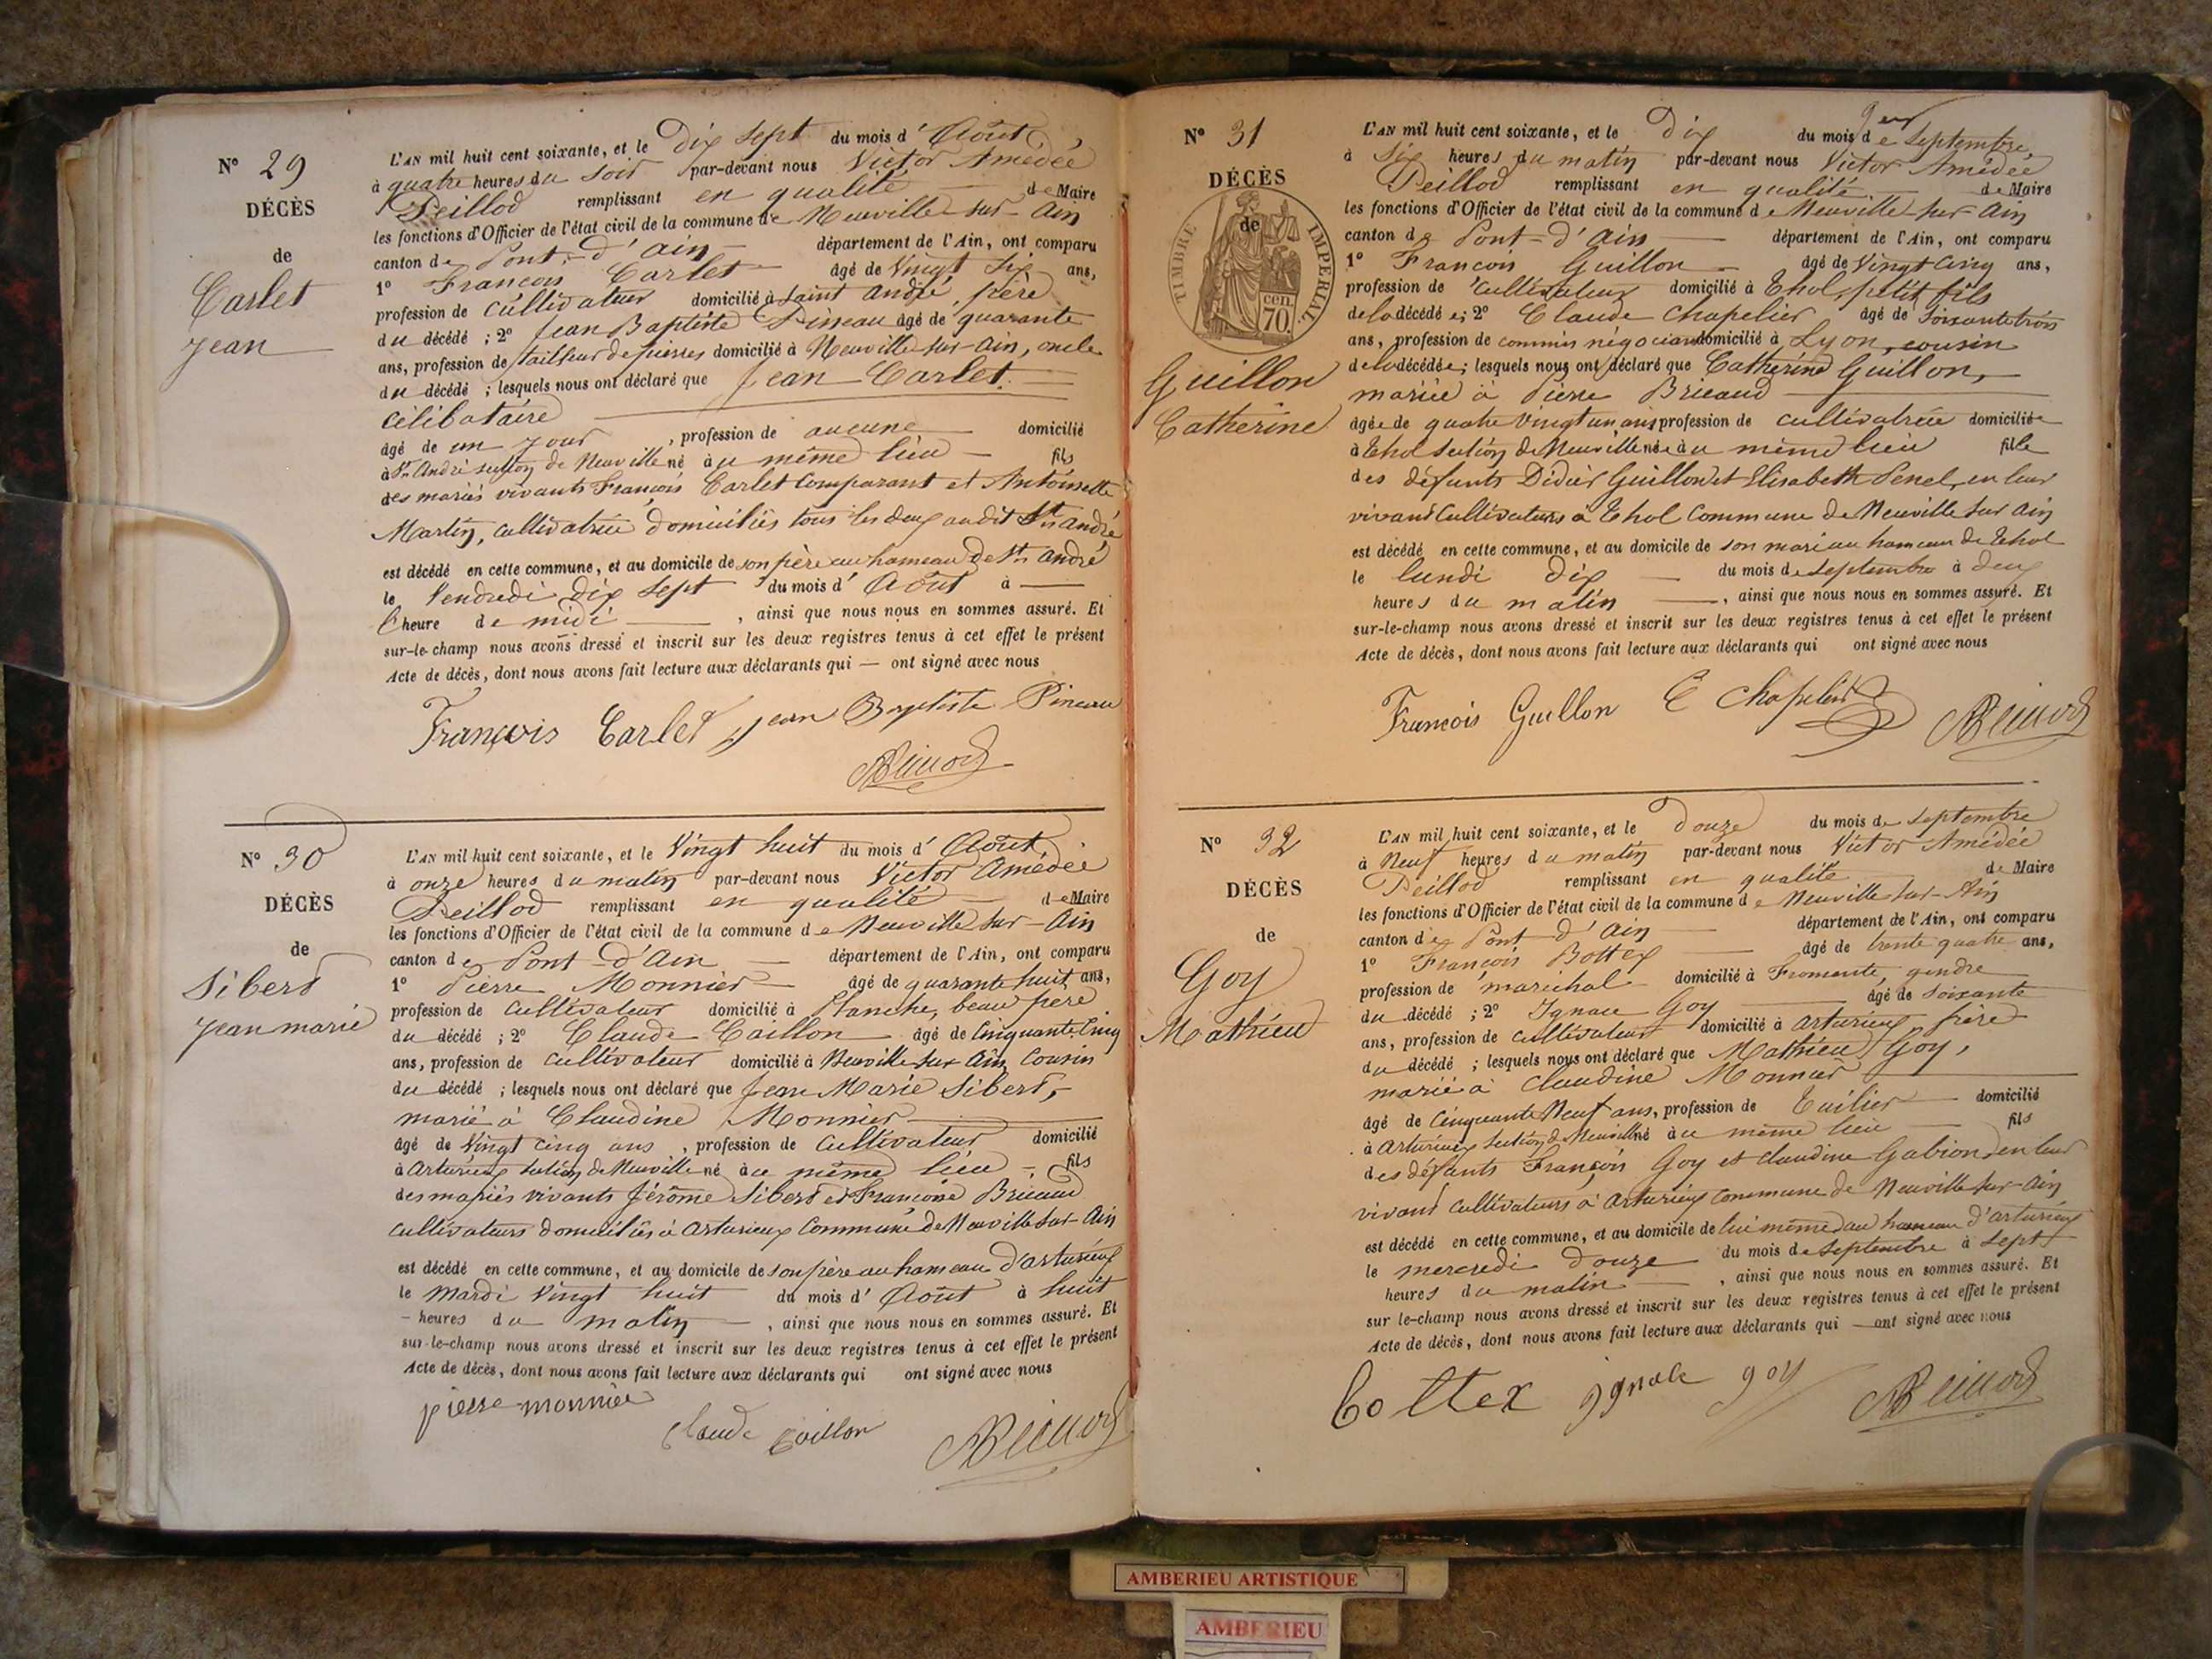 N° 29
DÉCÈS
de
Carlet
Jean
L'AN mil huit cent soixante, et le Dix sept du mois d'Août
à quatre heures du soir par-devant nous Victor Amédée
Peillod remplissant en qualité de Maire
les fonctions d'Officier de l'état civil de la commune de Neuville sur Ain
canton de Pont-d'Ain département de l'Ain, ont comparu
1° François Carlet âgé de Vingt six ans,
profession de Cultivateur domicilié à Saint André, père
du décédé ; 2° Jean Baptiste Pineau âgé de quarante
ans, profession de tailleur de pierres domicilié à Neuville sur-Ain, oncle
du décédé ; lesquels nous ont déclaré que Jean Carlet
célibataire
âgé de un jour, profession de aucune domicilié
à St André section de Neuville né au même lieu fils
des mariés vivants François Carlet comparant et Antoinette
Martin, cultivatrice domiciliés tous les deux audit St André
est décédé en cette commune, et au domicile de son père au hameau de St André
le Vendredi dix sept du mois d'Août à
l'heure de midi, ainsi que nous nous en sommes assuré. Et
sur-le-champ nous avons dressé et inscrit sur les deux registres tenus à cet effet le présent
Acte de décès, dont nous avons fait lecture aux déclarants qui — ont signé avec nous
François Carlet Jean Baptiste Pineau
N° 30
DÉCÈS
de
Sibert
Jean marie
L'AN mil huit cent soixante, et le Vingt huit du mois d'Août
à onze heures du matin par-devant nous Victor Amédée
Peillod remplissant en qualité de Maire
les fonctions d'Officier de l'état civil de la commune de Neuville sur-Ain
canton de Pont-d'Ain département de l'Ain, ont comparu
1° Pierre Monnier âgé de quarante huit ans,
profession de Cultivateur domicilié à Planche, beau père
du décédé ; 2° Claude Caillon âgé de Cinquante Cinq
ans, profession de Cultivateur domicilié à Neuville sur Ain, Cousin
du décédé ; lesquels nous ont déclaré que Jean Marie Sibert,
marié à Claudine Monnier
âgé de Vingt cinq ans, profession de Cultivateur domicilié
à Arturieux section de Neuville né au même lieu fils
des mariés vivants Jérôme Sibert et Françoise Bricaud
cultivateurs domiciliés à Arturieux Commune de Neuville sur-Ain
est décédé en cette commune, et au domicile de son père au hameau d'Arturieux
le Mardi Vingt huit du mois d'Août à huit
- heures du matin, ainsi que nous nous en sommes assuré. Et
sur-le-champ nous avons dressé et inscrit sur les deux registres tenus à cet effet le présent
Acte de décès, dont nous avons fait lecture aux déclarants qui ont signé avec nous
pierre monnier
Claude Caillon
N° 31
DÉCÈS
de
TIMBRE IMPÉRIAL
cen.
70.
Guillon
Catherine
L'AN mil huit cent soixante, et le Dix du mois de Septembre
à Six heures du matin par-devant nous Victor Amédée
Peillod remplissant en qualité de Maire
les fonctions d'Officier de l'état civil de la commune de Neuville sur Ain
canton de Pont-d'Ain département de l'Ain, ont comparu
1° François Guillon âgé de Vingt Cinq ans,
profession de Cultivateur domicilié à Thol, petit fils
de la décédée; 2° Claude Chapelier âgé de Soixante trois
ans, profession de commis négociant domicilié à Lyon, cousin
de la décédée; lesquels nous ont déclaré que Catherine Guillon,
mariée à Pierre Bricaud
âgée de quatre Vingt un ans profession de cultivatrice domiciliée
à Thol section de Neuville née au même lieu fille
des défunts Didier Guillon et Elisabeth Penel, en leur
vivant Cultivateurs à Thol Commune de Neuville sur Ain
est décédé en cette commune, et au domicile de son mari au hameau de Thol
le lundi dix du mois de Septembre à deux
heures du matin, ainsi que nous nous en sommes assuré. Et
sur-le-champ nous avons dressé et inscrit sur les deux registres tenus à cet effet le présent
Acte de décès, dont nous avons fait lecture aux déclarants qui ont signé avec nous
François Guillon C Chapelier
N° 32
DÉCÈS
de
Goy
Mathieu
L'AN mil huit cent soixante, et le Douze du mois de Septembre
à Neuf heures du matin par-devant nous Victor Amédée
Peillod remplissant en qualité de Maire
les fonctions d'Officier de l'état civil de la commune de Neuville sur-Ain
canton de Pont-d'Ain département de l'Ain, ont comparu
1° François Bottex âgé de trente quatre ans,
profession de maréchal domicilié à Fromente, gendre
du décédé ; 2° Ignace Goy âgé de soixante
ans, profession de Cultivateur domicilié à Arturieux, frère
du décédé ; lesquels nous ont déclaré que Mathieu Goy,
marié à Claudine Monnier
âgé de Cinquante Neuf ans, profession de Tuilier domicilié
à Arturieux section de Neuville né au même lieu fils
des défunts François Goy et Claudine Gabion en leur
vivant cultivateurs à Arturieux commune de Neuville sur-Ain
est décédé en cette commune, et au domicile de lui même au hameau d'Arturieux
le mercredi Douze du mois de Septembre à Sept
heures du matin, ainsi que nous nous en sommes assuré. Et
sur le-champ nous avons dressé et inscrit sur les deux registres tenus à cet effet le présent
Acte de décès, dont nous avons fait lecture aux déclarants qui — ont signé avec nous
Bottex ignace goy
AMBERIEU ARTISTIQUE
AMBERIEU